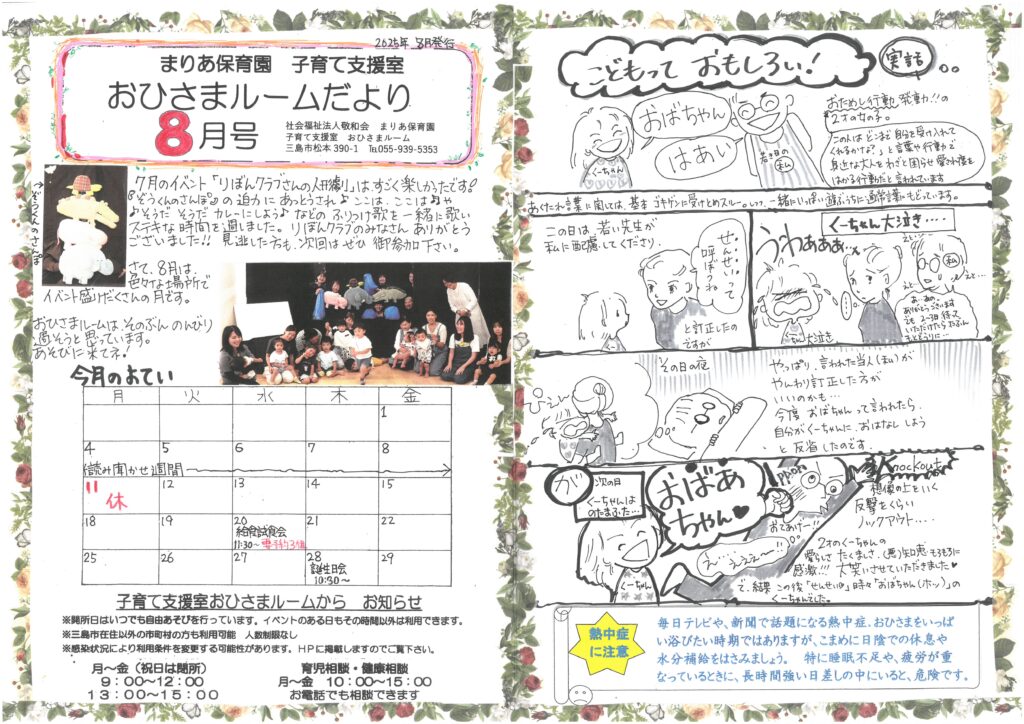 2025年 8月発行
まりあ保育園 子育て支援室
おひさまルームだより
8月号
社会福祉法人敬和会 まりあ保育園
子育て支援室 おひさまルーム
三島市松本390-1 ℡055-939-5353
↑ぞうくんのさんぽ
7月のイベント「りぼんクラブさんの人形劇」はすごく楽しかったです!
『ぞうくんのさんぽ』の迫力にあっとうされ♪ここは、ここは♪や
♪そうだ そうだ カレーにしよう♪などのふりつけ歌を一緒に歌い
ステキな時間を過しました。りぼんクラブのみなさん ありがとう
ございました!! 見逃した方も、次回はぜひ 御参加下さい。
さて、8月は、
色々な場所で
イベント盛りだくさんの月です。
おひさまルームは、そのぶん のんびり
過そうと思っています。
あそびに来てネ!
今月のよてい
月 火 水 木 金
1
4 5 6 7 8
読み聞かせ週間
11 12 13 14 15
休
18 19 20 21 22
給食試食会
11:30~ 要予約3組
25 26 27 28 29
誕生日会
10:30~
子育て支援室おひさまルームから お知らせ
※開所日はいつでも自由あそびを行っています。イベントのある日もその時間以外は利用できます。
※三島市在住以外の市町村の方も利用可能 人数制限なし
※感染状況により利用条件を変更する可能性があります。HPに掲載しますのでご覧下さい。
月~金(祝日は閉所)
9:00~12:00
13:00~15:00
育児相談・健康相談
月~金 10:00~15:00
お電話でも相談できます
こどもって おもしろい!
実話
おばちゃん
はあい
くーちゃん
若き日の
私
おためし行動 発動!!の
2才の女の子。
この人は どこまで自分を受け入れて
くれるかな?」と言葉や行動で
身近な大人をわざと困らせ 愛され度を
はかる行動だと言われています
あくたれ言葉に関しては、基本 ゴキゲンに受けとめスルーo
一緒にいっぱい遊ぶうちに通常言葉にもどっています。
この日は、若い先生が
私に配慮してくださり、
せんせいって
呼ばれね
と訂正したの
ですが
くーちゃん大泣き....
うわぁぁぁ…
くーちゃん大泣き
えと…
私
えと…
あ…あの、
ありがとうございます
でも 2~3日待って
いただけたらたぶん
もとどうりに…
その日の夜
ぴえん
やっぱり、言われた当人(まい)が
やんわり訂正した方が
いいのかも…
今度 おばちゃんって言われたら、
自分がくーちゃんに、おはなし しよう
と反省したのです。
が
次の日
くーちゃんは
のたまふた…
おばあちゃん♥
くーちゃん
おてあげー!!
え゛ええぇ~!!
knockout
想像の上をいく
反撃をくらい
ノックアウト....
2才のくーちゃんの
愛らしさ たくましさ、(悪)知恵 もろもろに
感激!!! 大笑いさせていただきました♥
で、結果 この後「せんせい」時々「おばちゃん(ホッ)」の
くーちゃんでした。
熱中症
に注意
毎日テレビや、新聞で話題になる熱中症、おひさまをいっぱ
い浴びたい時期ではありますが、こまめに日陰での休息や
水分補給をはさみましょう。 特に睡眠不足や、疲労が重
なっているときに、長時間強い日差しの中にいると、危険です。